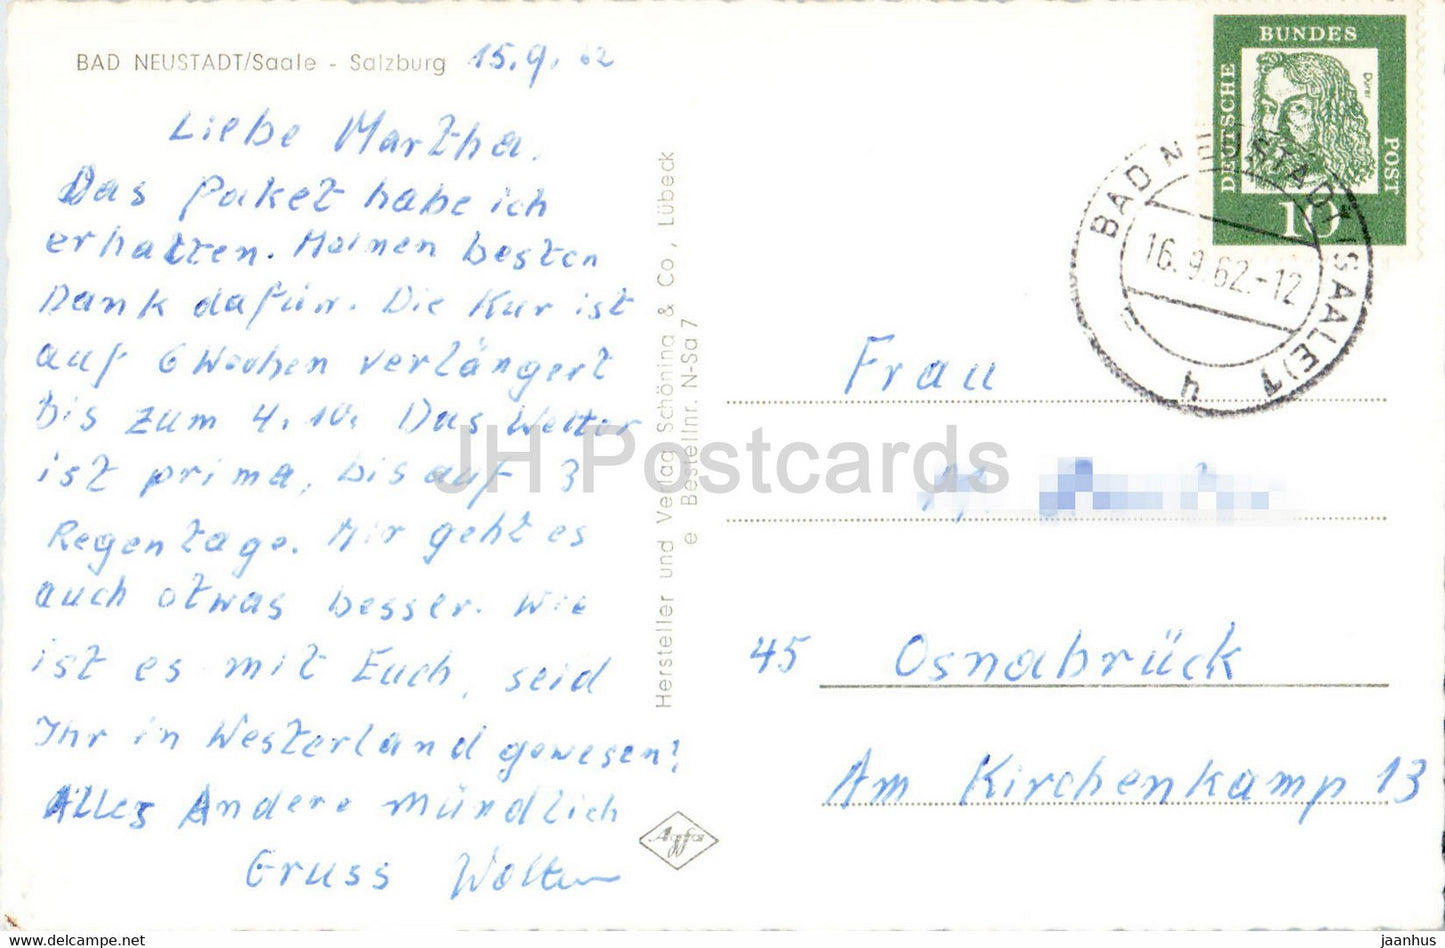 BAD NEUSTADT/Saale - Salzburg 15.9.62
Liebe Martha.
Das Paket habe ich
erhalten. Meinen besten
Dank dafür. Die Kur ist
auf 6 Wochen verlängert
bis zum 4.10. Das Wetter
ist prima, bis auf 3
Regentage. Mir geht es
auch etwas besser. Wie
ist es mit Euch, seid
Ihr in Westerland gewesen?
Alles Andere mündlich
Gruss
Hersteller und Verlag Schöning & Co., Lübeck
e Bestellnr. N-Sa 7
Agfa
DEUTSCHE BUNDES POST
Dürer
10
BAD NEUSTADT (SAALE) 1
16.9.62.-12
h
Frau
45 Osnabrück
Am Kirchenkamp 13
JH Postcards
jaanhus
https://www.delcampe.net